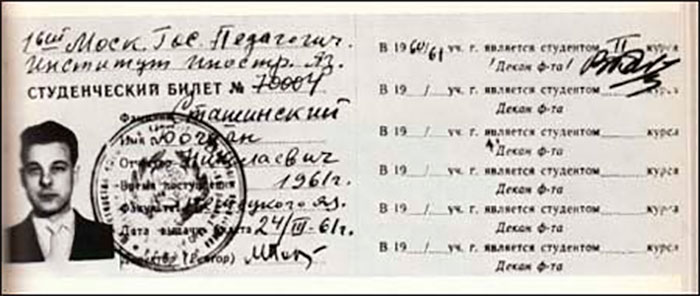 1й Моск. Гос. Педагогич.
Институт Иностр. Яз.
СТУДЕНЧЕСКИЙ БИЛЕТ № 70004
Фамилия Сташинский
Имя Богдан
Отчество Николаевич
Время поступления 1961г.
Факультет Немецкого яз.
Дата выдачи билета 24/III-61г.
Директор (Ректор)
В 1960/61 уч. г. является студентом II курса
Декан ф-та
В 19 / уч. г. является студентом курса
Декан ф-та
В 19 / уч. г. является студентом курса
Декан ф-та
В 19 / уч. г. является студентом курса
Декан ф-та
В 19 / уч. г. является студентом курса
Декан ф-та
В 19 / уч. г. является студентом курса
Декан ф-та